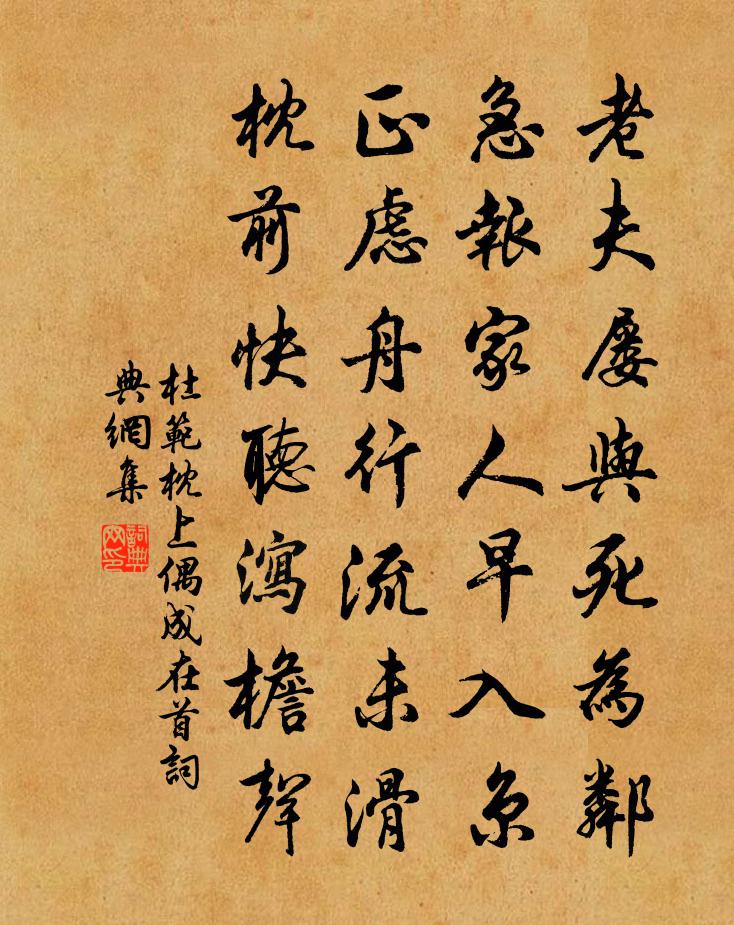 老夫屢與死為鄰
急報家人早入京
正慮舟行流未滑
枕前快聽瀉檐聲
杜範枕上偶成在首詞
典網集
詞典
网印